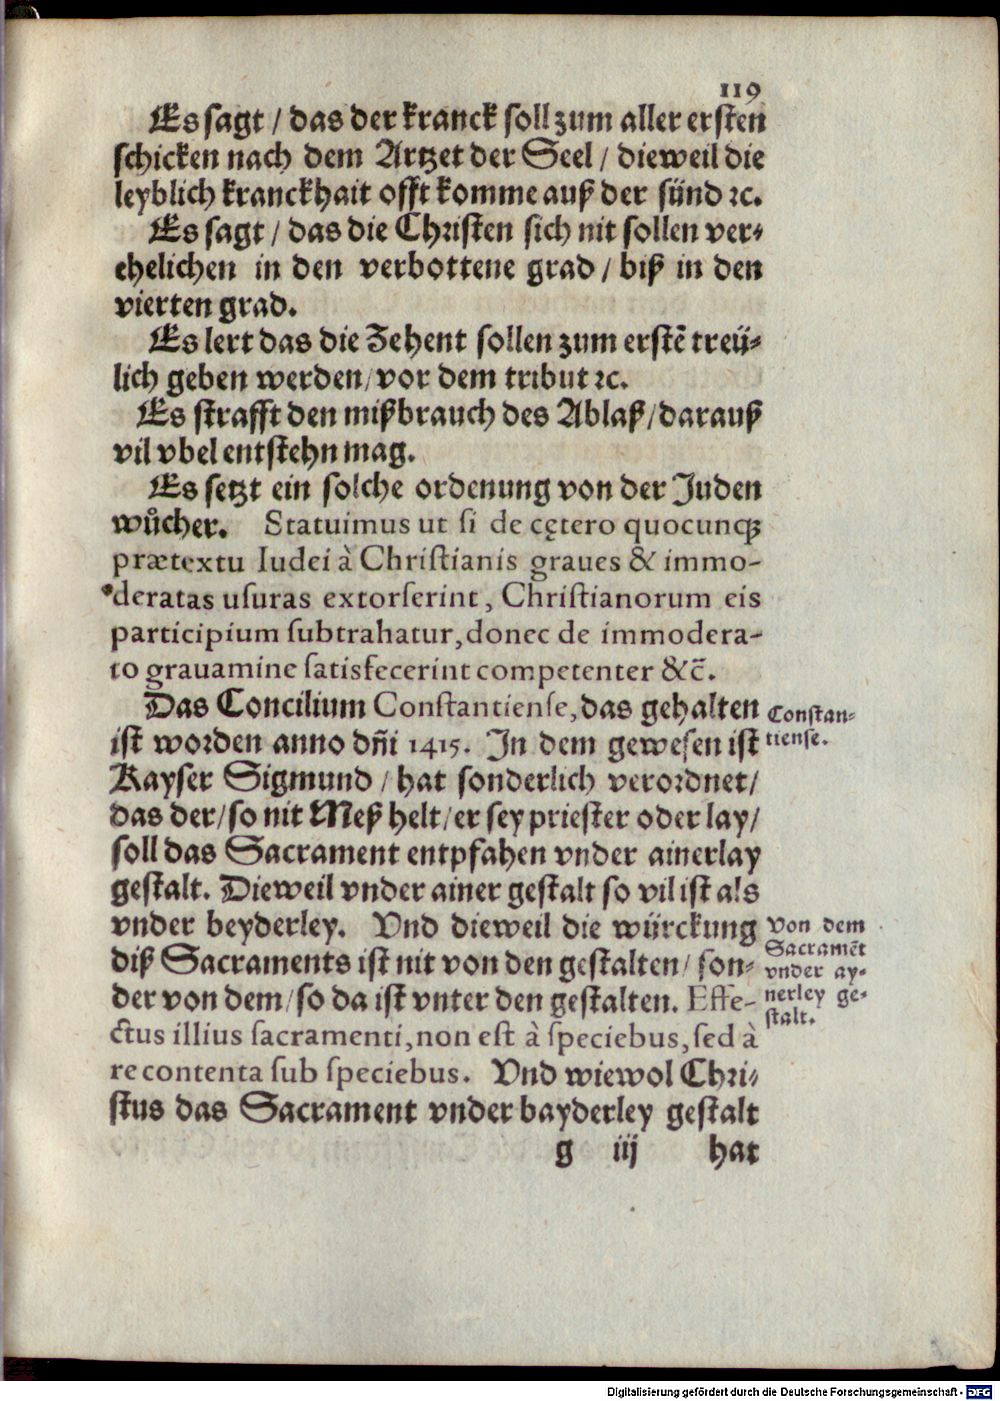 119
Es sagt / das der kranck soll zum aller ersten
schicken nach dem Artzet der Seel / dieweil die
leyblich kranckhait offt komme auß der sünd ꝛc.
Es sagt / das die Christen sich nit sollen ver⸗
ehelichen in den verbottene grad / biß in den
vierten grad.
Es lert das die Zehent sollen zum erstẽ treü⸗
lich geben werden / vor dem tribut ꝛc.
Es strafft den mißbrauch des Ablaß / darauß
vil vbel entstehn mag.
Es setzt ein solche ordenung von der Juden
wůcher. Statuimus ut si de cętero quocunqꝫ
prætextu Iudei à Christianis graues & immo-
deratas usuras extorserint, Christianorum eis
participium subtrahatur, donec de immodera-
to grauamine satisfecerint competenter &c̃.
Das Concilium Constantiense, das gehalten
ist worden anno dñi 1415. In dem gewesen ist
Kayser Sigmund / hat sonderlich verordnet /
das der / so nit Meß helt / er sey priester oder lay /
soll das Sacrament entpfahen vnder ainerlay
gestalt. Dieweil vnder ainer gestalt so vil ist als
vnder beyderley. Vnd dieweil die würckung
diß Sacraments ist nit von den gestalten / son⸗
der von dem / so da ist vnter den gestalten. Effe-
ctus illius sacramenti, non est à speciebus, sed à
re contenta sub speciebus. Vnd wiewol Chri⸗
stus das Sacrament vnder bayderley gestalt
g iij hat
Constan⸗
tiense.
Von dem
Sacramẽt
vnder ay⸗
nerley ge⸗
stalt.
Digitalisierung gefördert durch die Deutsche Forschungsgemeinschaft - DFG